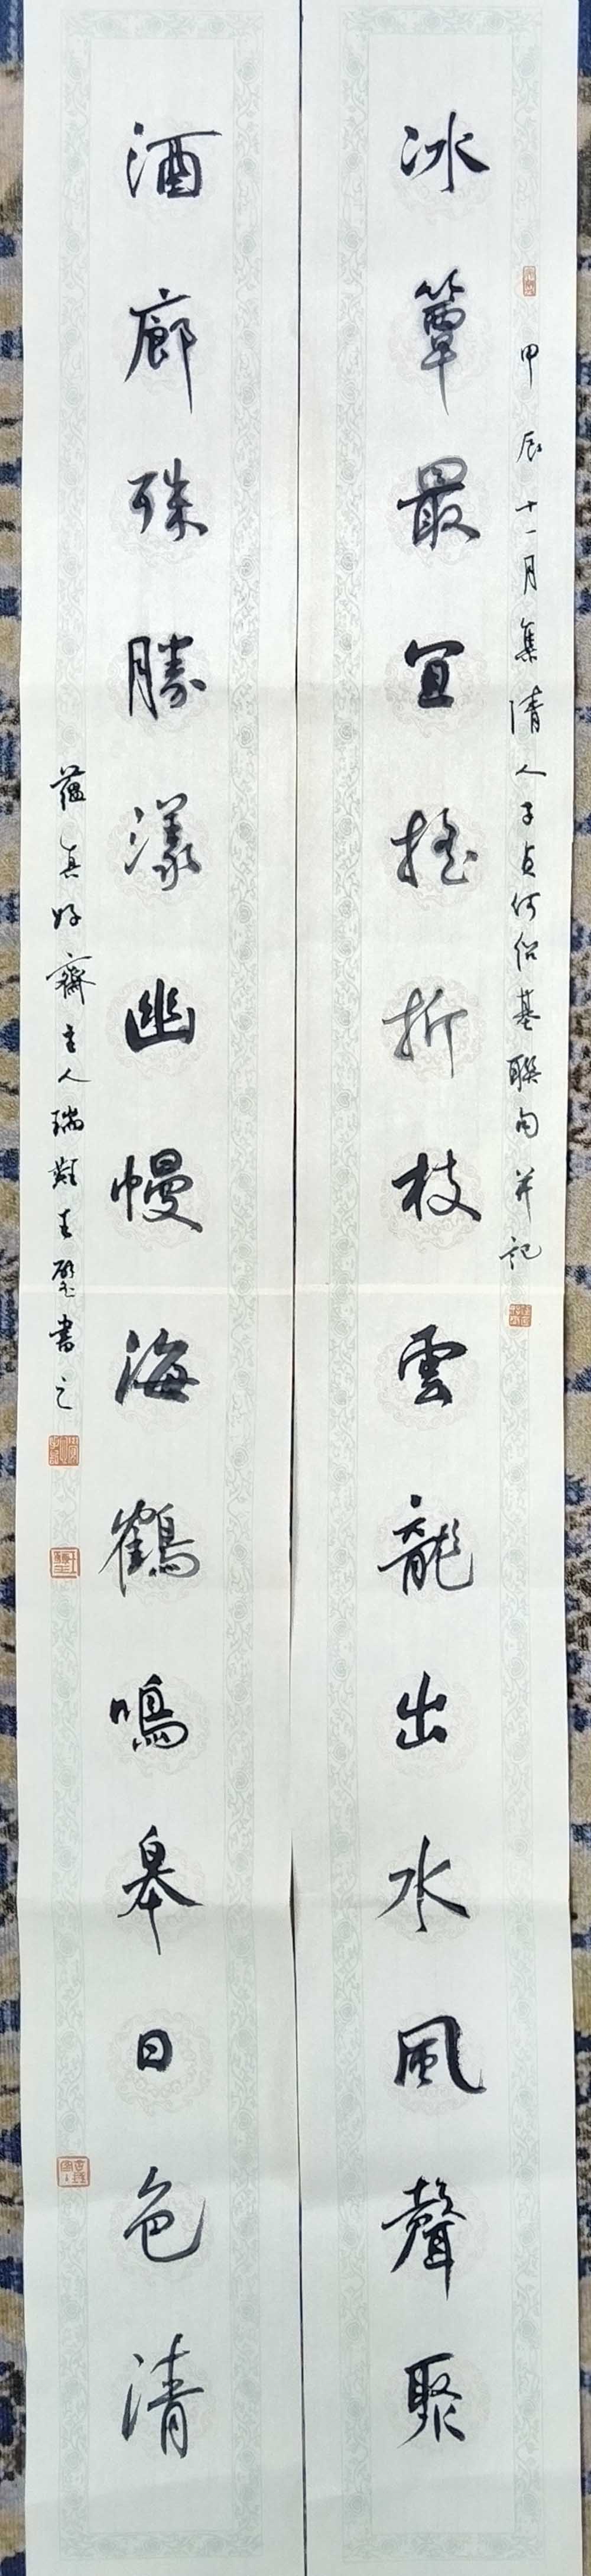 甲辰十一月集清人子貞何紹基聯句并記
冰簟最宜搖折枝雲龍出水風聲聚
酒廊殊勝漾幽幔海鶴鳴皋日色清
蘊真好齋主人瑞麟書之